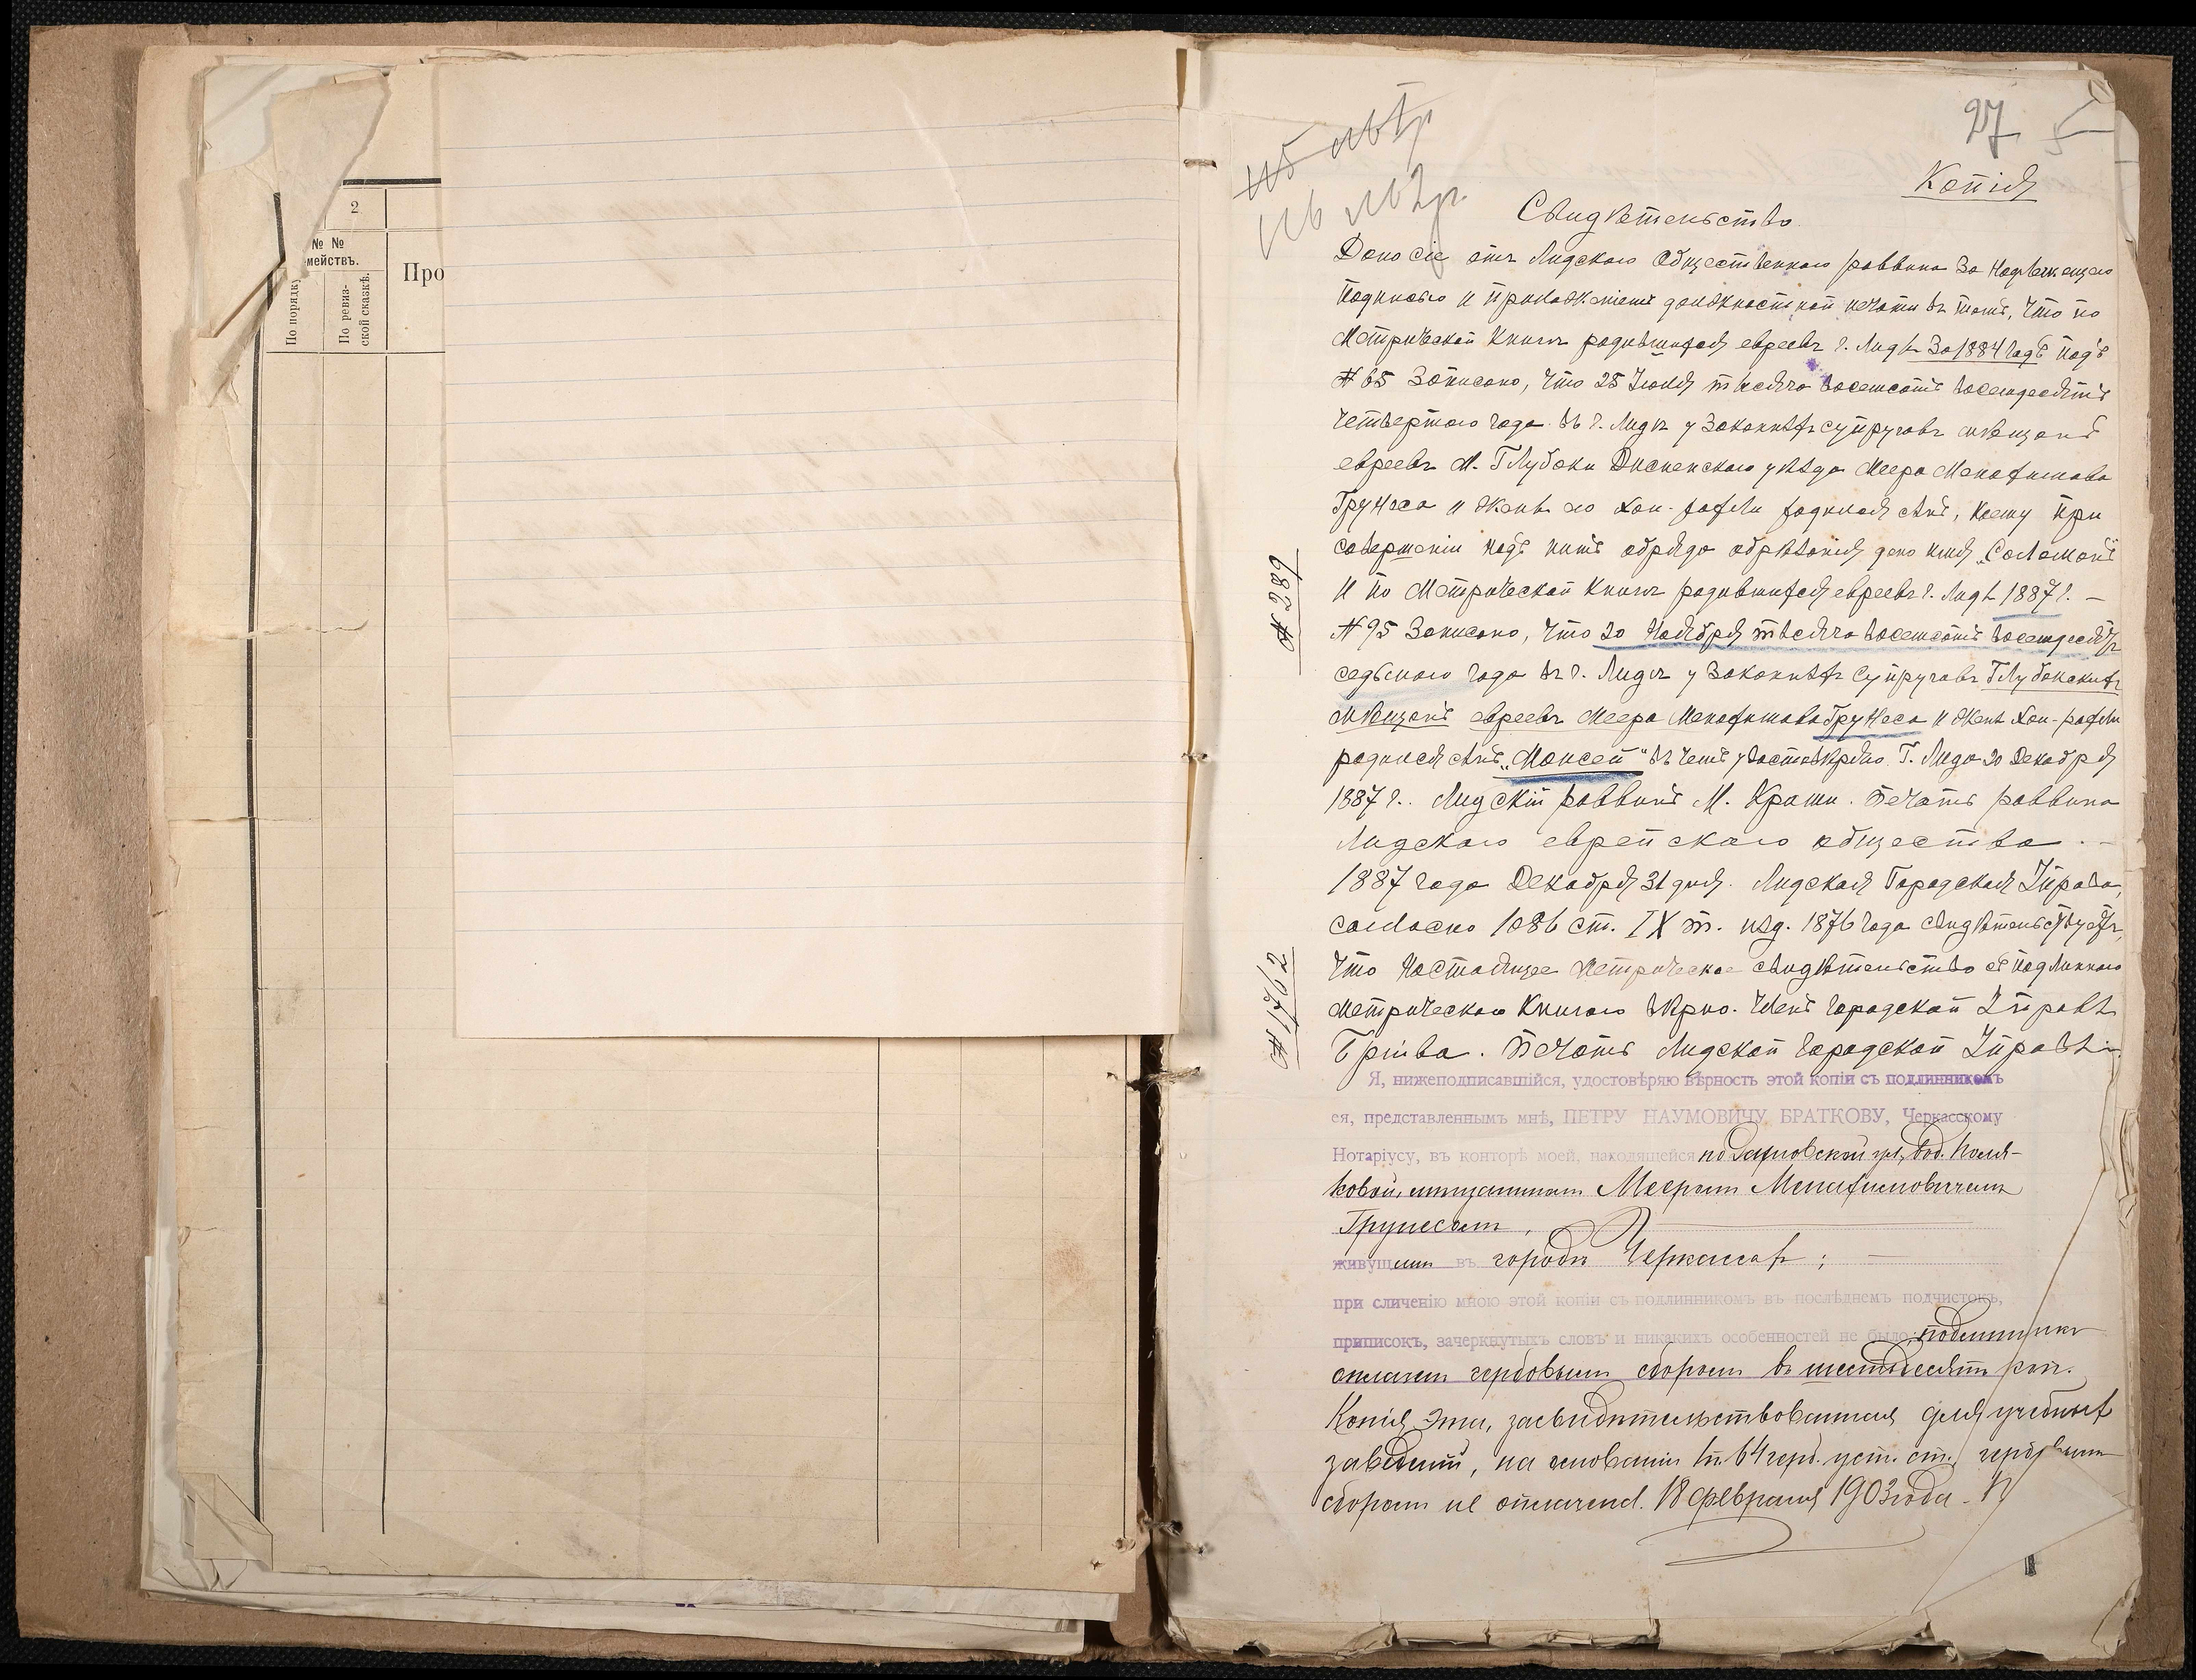 2
№ №
мействъ.
По порядку
По ревиз-
ской сказкѣ.
Про
27
Копія
Свидѣтельство.
Дано сіе отъ Лидскаго Общественнаго раввина за надлежащею
подписью и приложеніемъ должностной печати въ томъ, что по
Метрической книгѣ родившихся евреевъ г. Лиды за 1884 годъ подъ
№ 65 записано, что 25 Іюня тысяча восемсотъ восемдесятъ
четвертаго года въ г. Лидѣ у законныхъ супруговъ мѣщанъ
евреевъ м. Глубоки Дисненскаго уѣзда Меера Менахимова
Грунеса и жены его Хаи-Рахли родился сынъ, коему при
совершеніи надъ нимъ обряда обрѣзанія дано имя „Соломонъ"
и по Метрической книгѣ родившихся евреевъ г. Лиды 1887 г. —
№ 289
№ 95 записано, что 20 Ноября тысяча восемсотъ восемдесятъ
седьмаго года въ г. Лидѣ у законныхъ супруговъ Глубокскихъ
мѣщанъ евреевъ Меера Менахимова Грунеса и жены Хаи-Рахли
родился сынъ „Моисей" въ чемъ удостовѣряю. Г. Лида 20 Декабря
1887 г.. Лидскій раввинъ М. Печать раввина
Лидскаго еврейскаго общества . —
1887 года Декабря 31 дня. Лидская Городская Управа,
согласно 1086 ст. IX т. изд. 1876 года свидѣтельствуетъ,
что настоящее метрическое свидѣтельство съ подлинною
№ 1762
метрическою книгою вѣрно. Членъ Городской Управы
Печать Лидской Городской Управы.
Я, нижеподписавшійся, удостовѣряю вѣрность этой копіи съ подлинникомъ
ея, представленнымъ мнѣ, ПЕТРУ НАУМОВИЧУ БРАТКОВУ, Черкасскому
Нотаріусу, въ конторѣ моей, находящейся по ул., въ д. Поля-
ковой, мѣщаниномъ Мееромъ Менахимовичемъ
Грунесомъ,
живущимъ въ городѣ Черкассахъ; —
при сличеніи мною этой копіи съ подлинникомъ въ послѣднемъ подчистокъ,
приписокъ, зачеркнутыхъ словъ и никакихъ особенностей не было; подлинникъ
оплаченъ гербовымъ сборомъ въ шестьдесятъ коп.
Копія эта, засвидѣтельствованная для учебныхъ
заведеній, на основаніи п. 64 герб. уст. ст. гербовымъ
сборомъ не оплачена. 18 Февраля 1903 года.